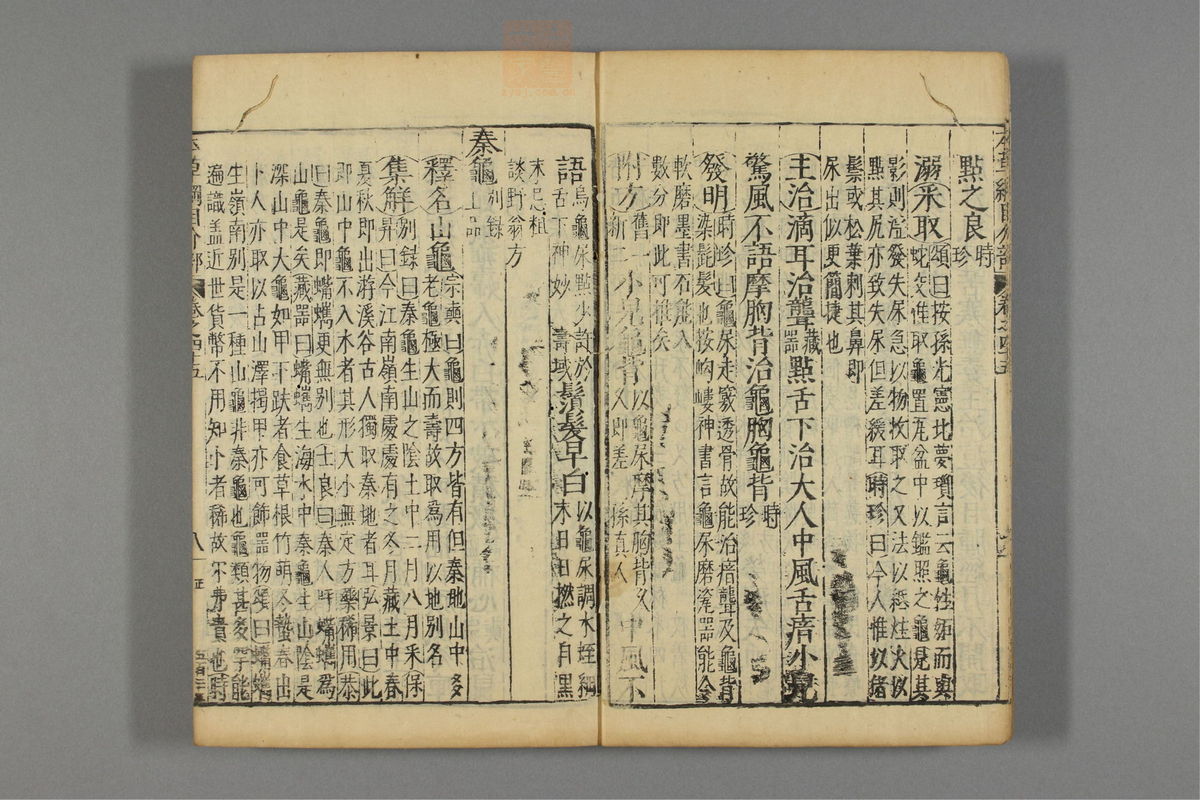 點之良時珍
溺采取頌曰按孫光憲北夢瑣言云龜性妬而與
蛇交惟取龜置瓦盆中以鑑照之龜見其
影則淫發失尿急以物收取之又法以紙炷火以
點其尻亦致失尿但差緩耳時珍曰今人惟以猪
鬃或松葉刺其鼻即
尿出似更簡捷也
主治滴耳治聾藏器點舌下治大人中風舌瘖小兒
驚風不語摩胸背治龜胸龜背時珍
發明時珍曰龜尿走竅透骨故能治瘖聾及龜背
染髭髮也按岣嶁神書言龜尿磨瓷器能令
軟磨墨書石能入
數分即此可推矣
附方舊一新二小兒龜背以龜尿摩其胸背久久即差孫真人中風不
語烏龜尿點少許於舌下神妙壽域鬚髮早白以龜尿調水蛭細
末日日撚之自黑末忌粗
談野翁方
秦龜別錄上品
釋名山龜宗奭曰龜則四方皆有但秦地山中多
老龜極大而壽故取爲用以地別名
集解別録曰秦龜生山之陰土中二月八月采保
昇曰今江南嶺南處處有之冬月藏土中春
夏秋即出游溪谷古人獨取秦地者耳弘景曰此
即山中龜不入水者其形大小無定方藥稀用恭
曰秦龜即蟕蠵更無別也士良曰秦人呼蟕蠵爲
山龜是矣藏器曰蟕蠵生海水中秦龜生山陰是
深山中大龜如甲下趺者食草根竹萌冬蟄春出
卜人亦取以占山澤揭甲亦可飾器物頌曰蟕蠵
生嶺南别是一種山龜非秦龜也龜類甚多罕能
遍識蓋近世貨幣不用知卜者稀故不弗貴也時
卷之四十五
八